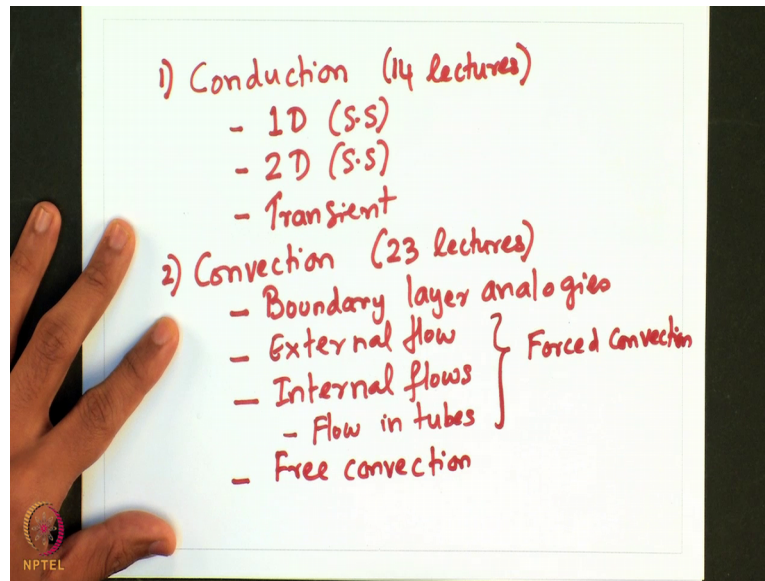 1) Conduction (14 lectures)
- 1D (S.S)
- 2D (S.S)
- Transient
2) Convection (23 lectures)
- Boundary layer analogies
- External flow
- Internal flows
- Flow in tubes
} Forced Convection
- Free convection
NPTEL